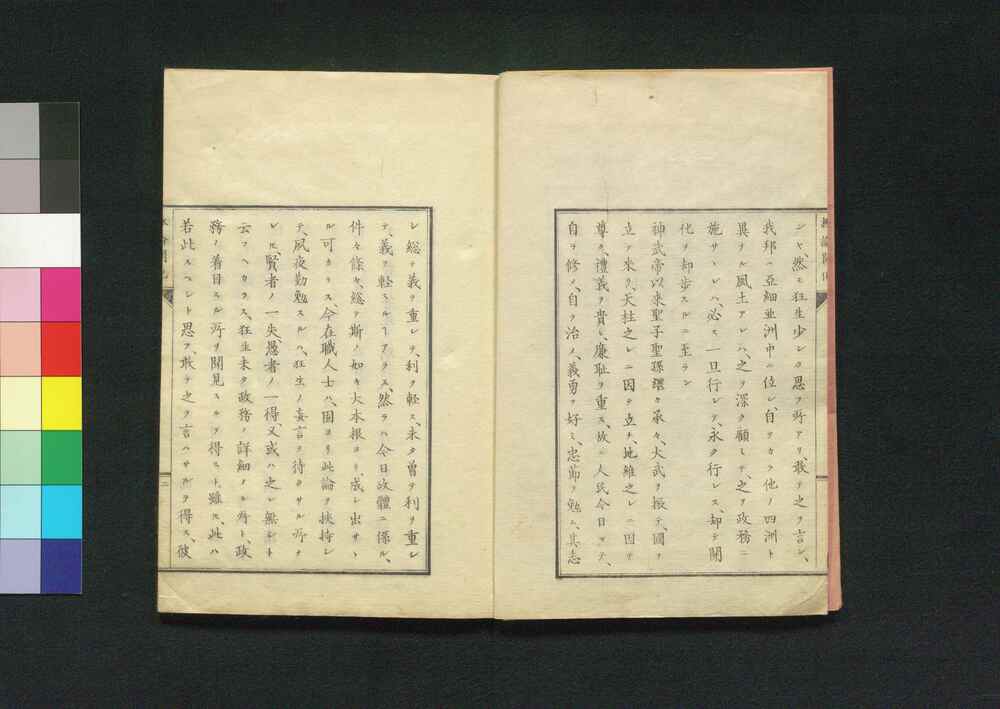 シヤ、然モ狂生少シク思フ所アリ、敢テ之ヲ言シ、
我邦ハ亞細亜洲中ニ位シ、自ヲカラ他ノ四洲ト
異ナル風土アレハ、之ヲ深ク顧ミテ、之ヲ政務ニ
施サヽレハ、必ス一旦行レテ、永ク行レス、却テ開
化ヲ却歩スルニ至ラン
神武帝以来聖子聖孫、継々承々、大武ヲ振テ、國ヲ
立テ来ク、天柱之レニ因テ立チ、地維之レニ因テ
尊ク、禮義ヲ貴ヒ、廉耻ヲ重ス、故ニ人民今日ヲテ、
自ヲ修メ、自ヲ治メ、義勇ヲ好ミ、忠節ヲ勉ム、其志
レ総テ義ヲ重シテ、利ヲ軽ス、未タ曽テ利ヲ重シ
テ、義ヲ軽スルヿアラス、然ラハ今日政體ニ係ル、
件々條々、総テ斯ノ如キ大本根ヨリ、成シ出サヽ
ル可カラス、今在職人士ハ、固ヨリ此論ヲ挟持シ
テ、夙夜勤勉スルハ、狂生ノ妄言ヲ待タサル所ナ
レ𪜈、賢者ノ一失、愚者ノ一得、又或ハ之レ無シト
云フヘカラス、狂生未タ政務ノ詳細ナル所ト、政
務ノ着目スル所ヲ聞見スルヲ得スト雖ス、此ハ
若此スヘシト思ヲ、敢テ之ヲ言ハサルヲ得ス、彼